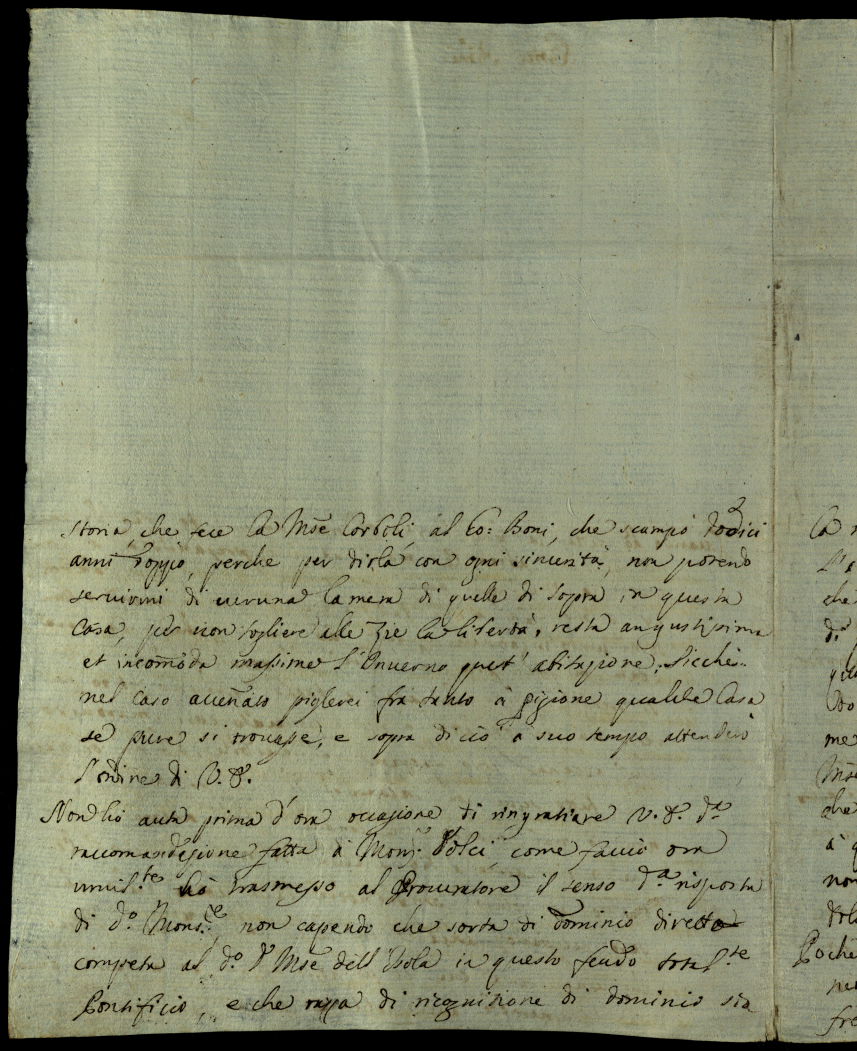 storia, che fece la Mse Corboli, al Co: Boni, che scampò dodici
anni doppio, perche per dirla con ogni sincerità, non potendo
servirmi di veruna Camera di quelle di sopra in questa
Casa, per non togliere alle Zie la libertà, resta angustissima
et incomoda massime l'Inverno quest' abitazione, sicche
nel caso accenato piglerei frà tanto à pigione qualche Casa
se pure si trovasse, e sopra di ciò à suo tempo attenderò
l'ordine di V.E.
Non hò auta prima d'ora occasione di ringratiare V.E. d.a
raccomandazione fatta à Mons.r Dolci, come faccio ora
umil.te hò trasmesso al Procuratore il senso d.a risposta
di d.o Mons.re non capendo che sorta di dominio diretto
competa al d.o Mse dell' Isola in questo feudo
Pontificio, e che razza di ricognitione di dominio sia
la
che
me
Mse
che
à
non
Poche